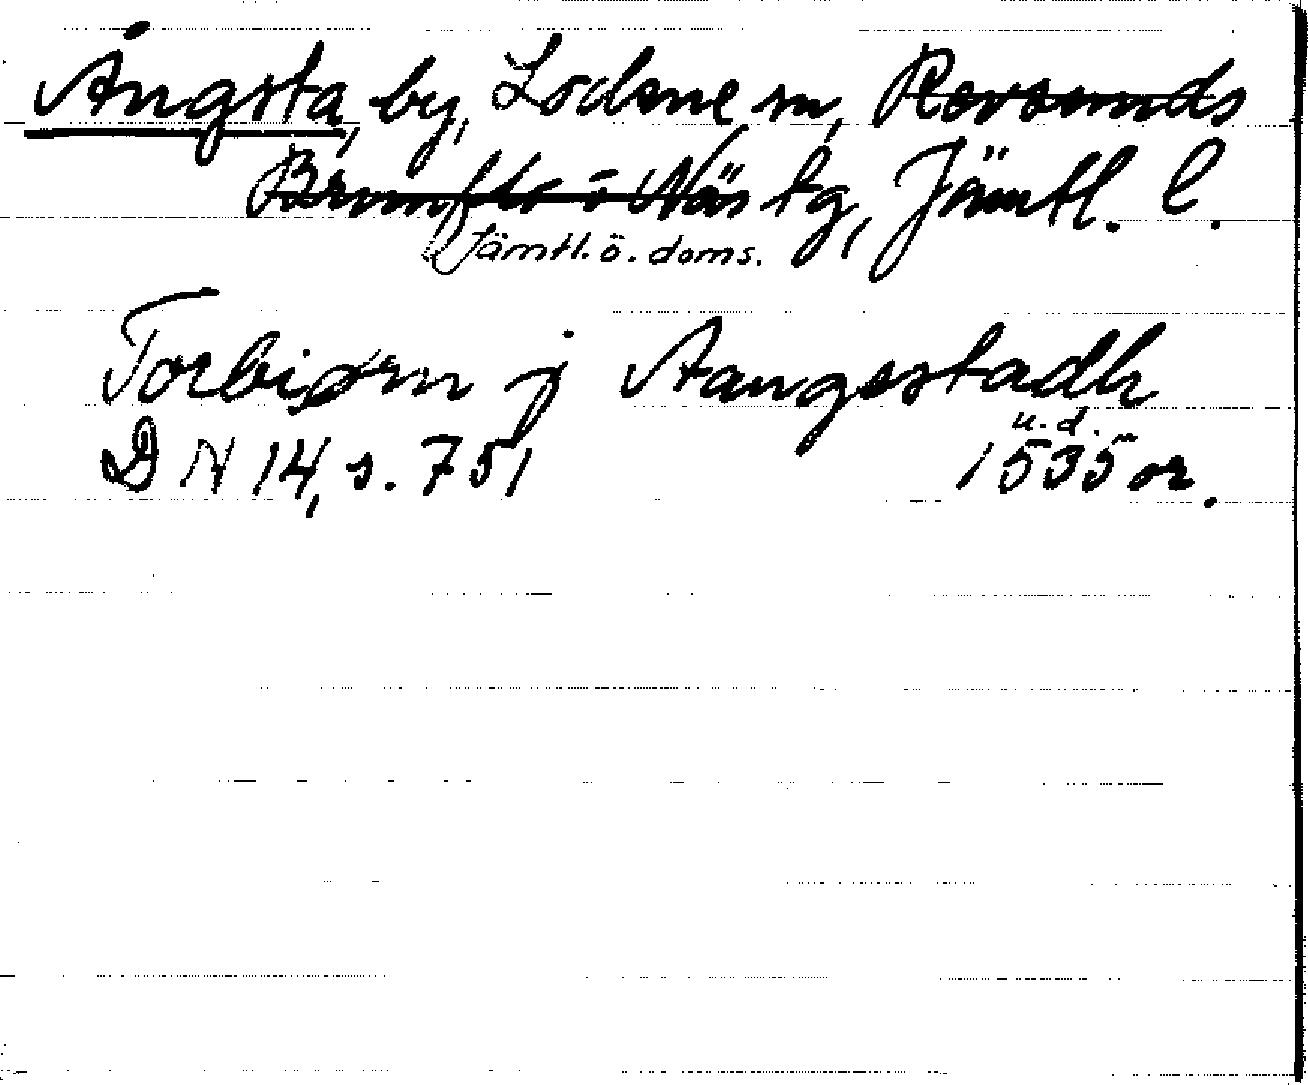 Ångsta, by, Lockne sn, Revsunds
Brunflo o Näs tg, Jämtl. l.
Jämtl. ö. doms.
Torbiørn j Aangestadh
u. d.
D N 14, s. 751 1535 or.